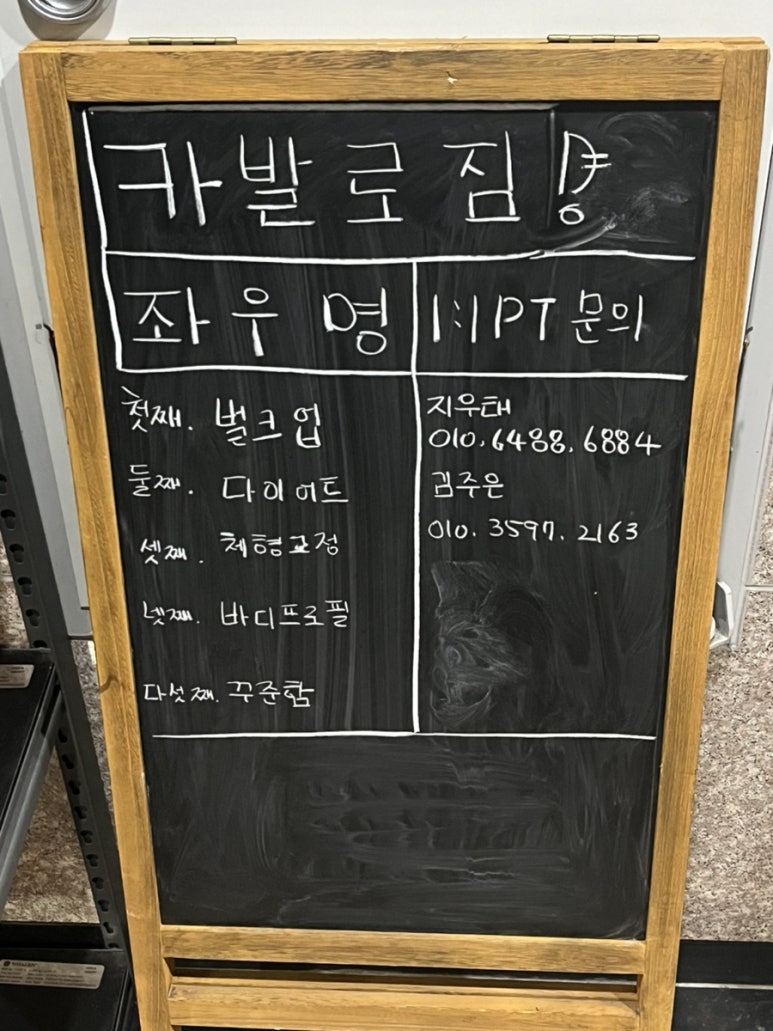 카발로짐
좌우명
첫째. 벌크업
둘째. 다이어트
셋째. 체형교정
넷째. 바디프로필
다섯째. 꾸준함
1:1 PT 문의
지우태
010.6488.6884
김주은
010.3597.2163